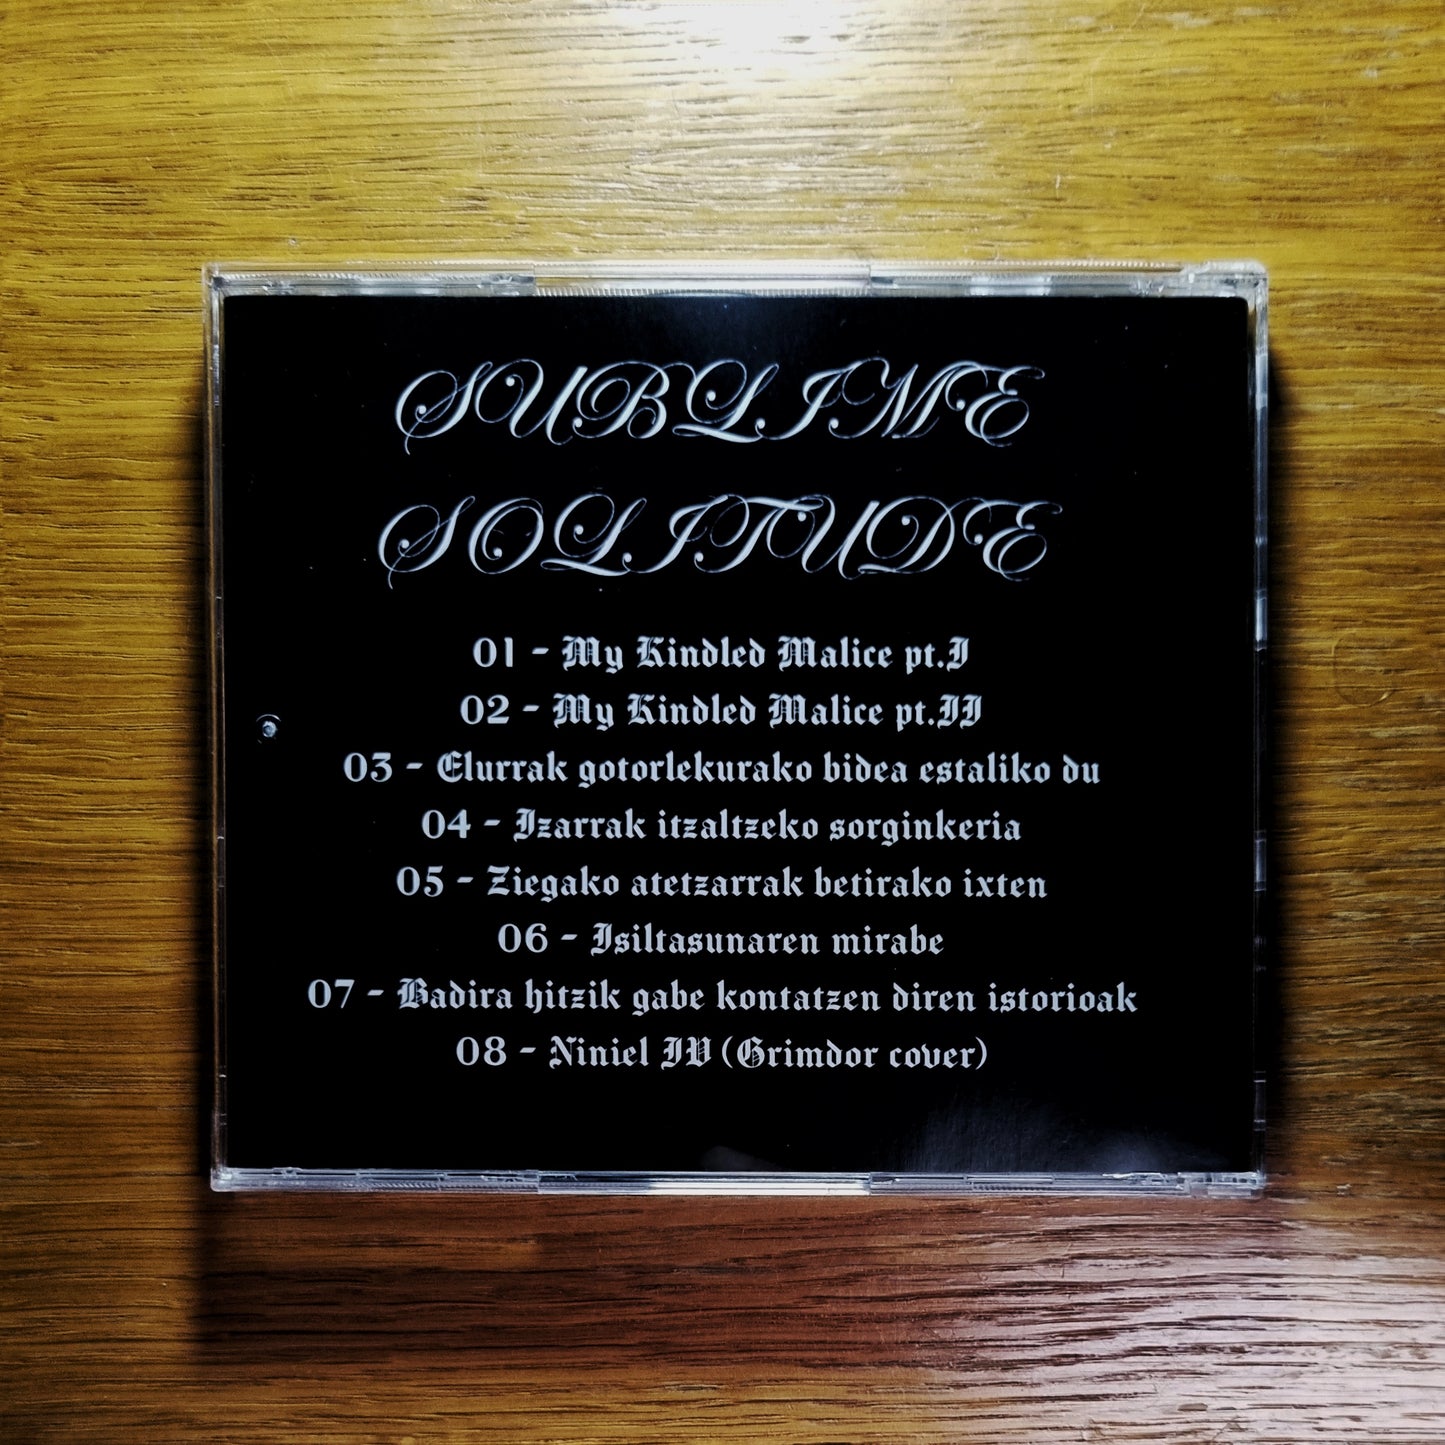 SUBLIME
SOLITUDE
01 - My Kindled Malice pt.I
02 - My Kindled Malice pt.II
03 - Elurrak gotorlekurako bidea estaliko du
04 - Izarrak itzaltzeko sorginkeria
05 - Ziegako atetzarrak betirako ixten
06 - Isiltasunaren mirabe
07 - Badira hitzik gabe kontatzen diren istorioak
08 - Niniel IV (Grimdor cover)